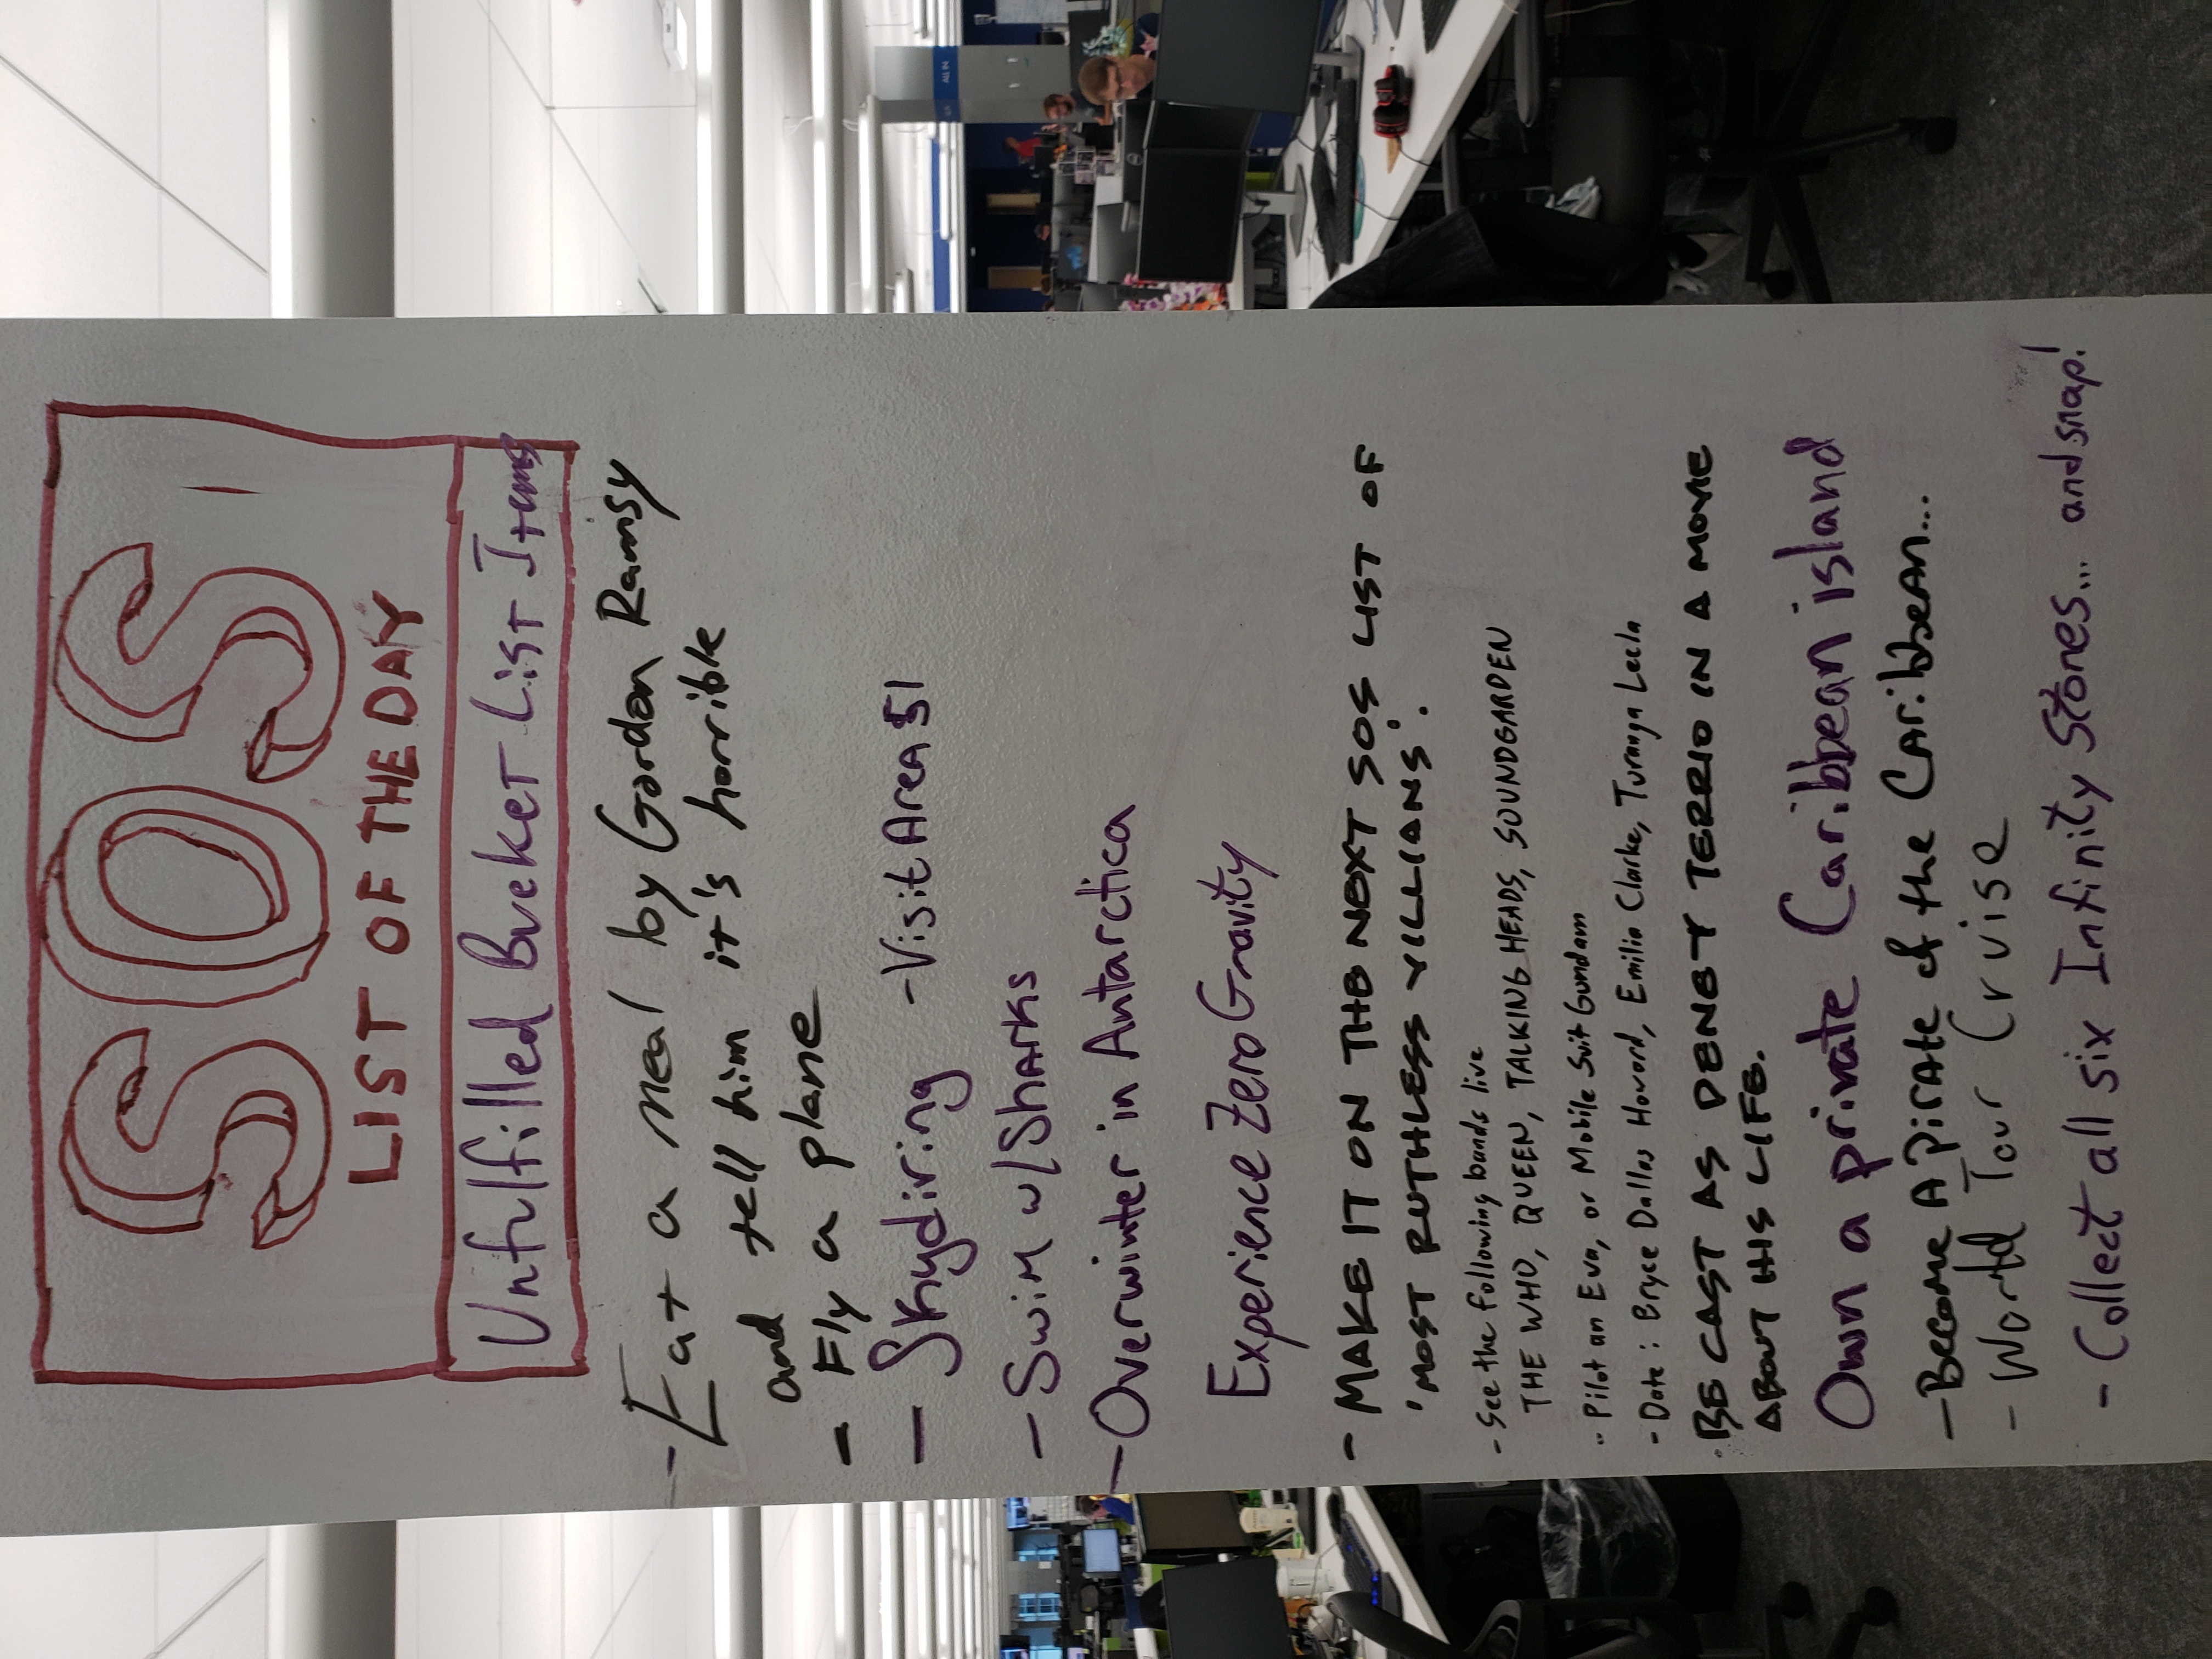 SOS
LIST OF THE DAY
Unfulfilled Bucket List Items
- Eat a meal by Gordon Ramsy
and tell him it's horrible
- Fly a plane
- Skydiving - Visit Area 51
- Swim w/ Sharks
- Overwinter in Antarctica
Experience Zero Gravity
- MAKE IT ON THE NEXT SOS LIST OF
'MOST RUTHLESS VILLIANS'.
- See the following bands live
THE WHO, QUEEN, TALKING HEADS, SOUNDGARDEN
- Pilot an Eva, or Mobile Suit Gundam
- Date: Bryce Dallas Howard, Emilia Clarke, Turanga Leela
· BE CAST AS DENEY TERRIO IN A MOVIE
ABOUT HIS LIFE.
Own a private Caribbean island
- Become A Pirate of the Caribbean...
- World Tour Cruise
- Collect all six Infinity Stones... and snap!
ALL IN